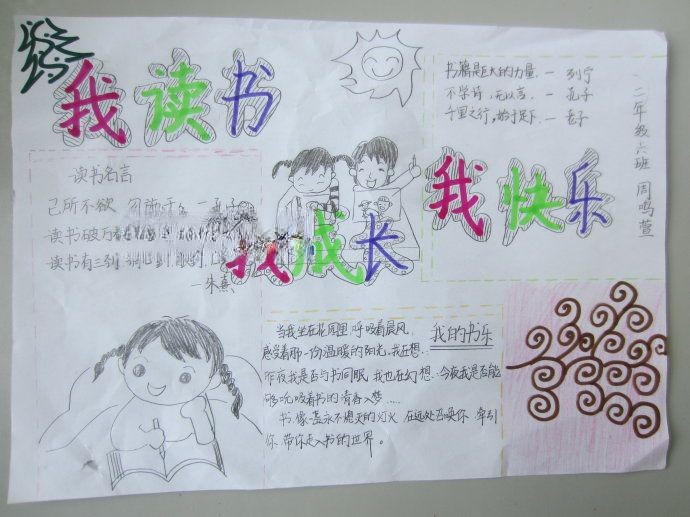 我读书
我成长
我快乐
书籍是巨大的力量. — 列宁
不学诗,无以言. — 孔子
千里之行,始于足下 — 老子
二年级六班 周鸣萱
读书名言
己所不欲 勿施于 — 孔子
读书破万
读书有三到
— 朱熹
我的书乐
当我坐在花园里呼吸着晨风,
感受着那一份温暖的阳光,我在想..
昨夜我是否与书同眠,我也在幻想.今夜我是否能
够吮吸着书的青香入梦.....
书.像一盏永不熄灭的灯火 在远处召唤你 牵引
你.带你走入书的世界。